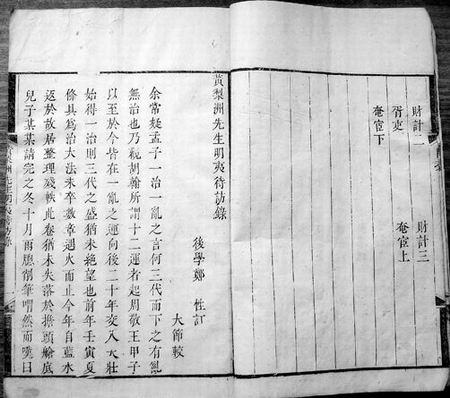 財計二 財計三
胥吏 奄宦上
奄宦下
黃梨洲先生明夷待訪錄
後學鄭 性訂
大節較
余常疑孟子一治一亂之言何三代而下之有亂
無治也乃觀胡翰所謂十二運者起周敬王甲子
以至於今皆在一亂之運向後二十年交入大壯
始得一治則三代之盛猶未絕望也前年壬寅夏
條具為治大法未卒數章遇火而止今年自藍水
返於故居整理殘帙此卷猶未失落於擔頭艙底
兒子某某請完之冬十月雨牕削筆喟然而嘆曰